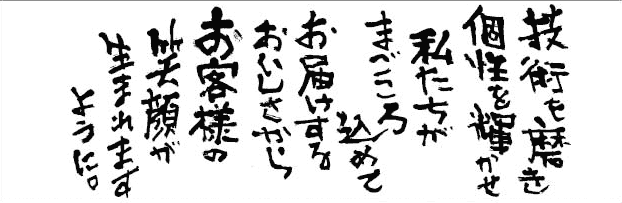 技術を磨き
個性を輝かせ
私たちが
まごころ
込めて
お届けする
おいしさから
お客様の
笑顔が
生まれます
ように。